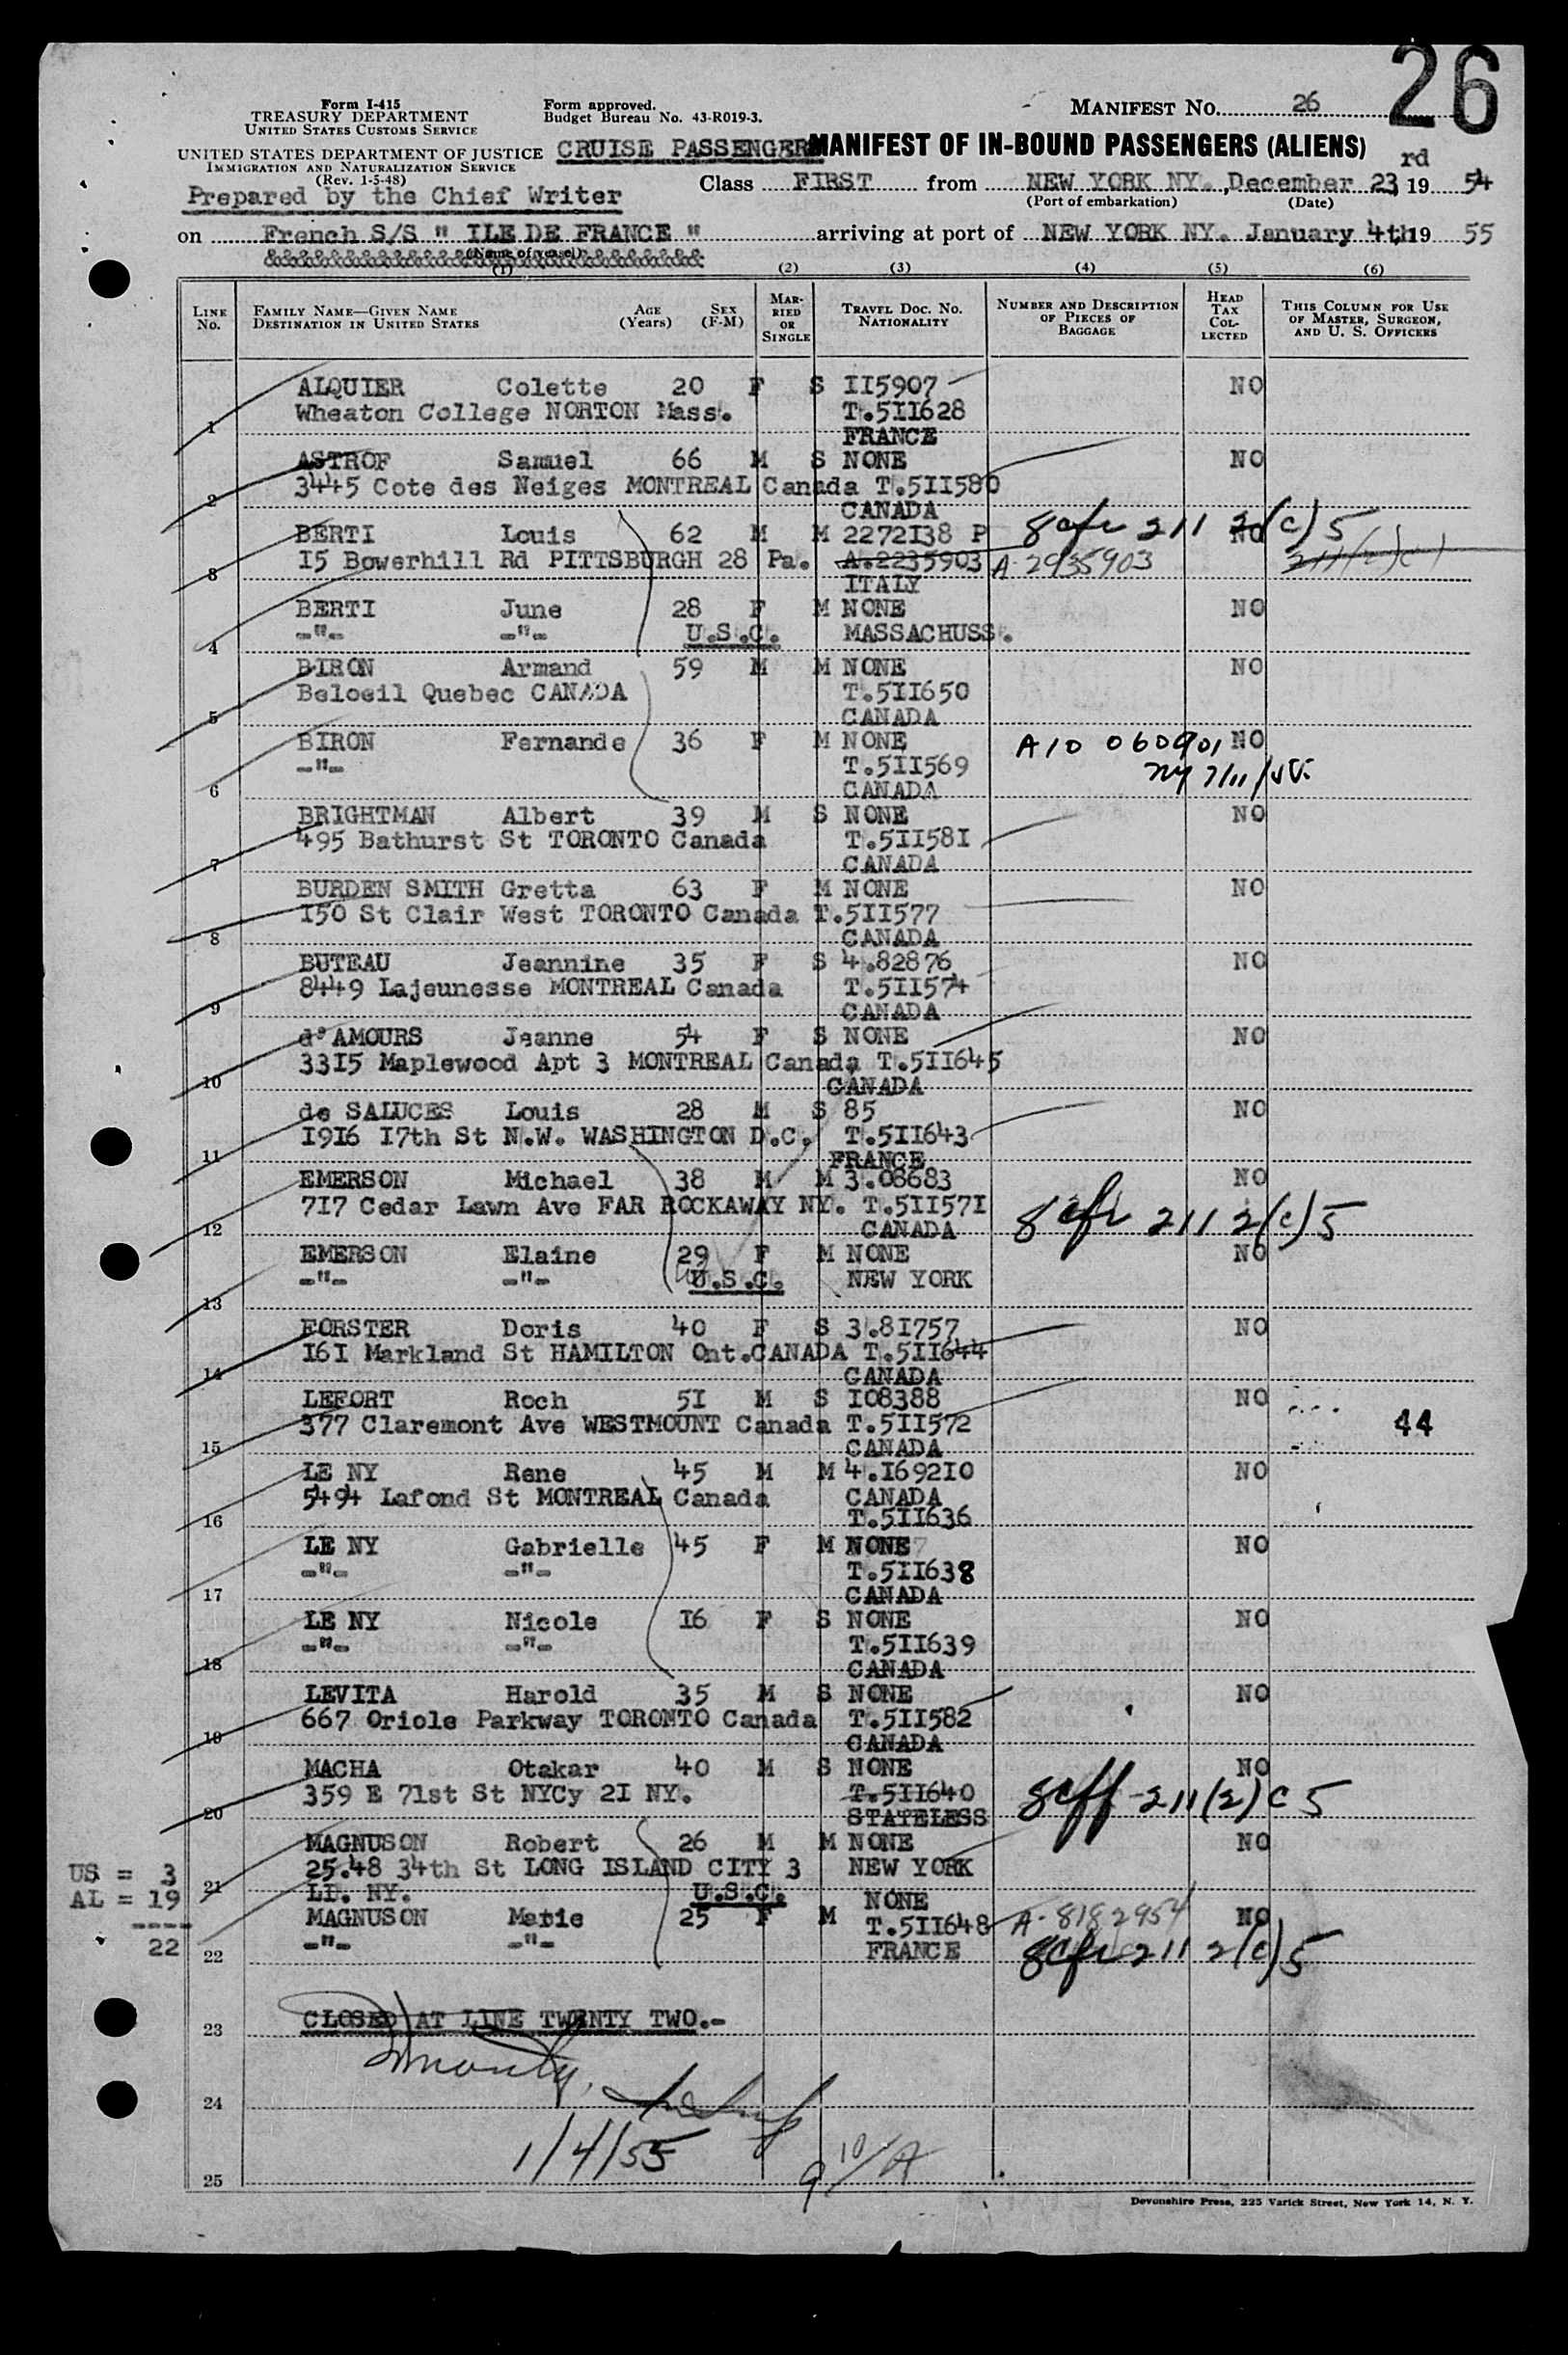 26
Form I-415
TREASURY DEPARTMENT
UNITED STATES CUSTOMS SERVICE
Form approved.
Budget Bureau No. 43-R019-3.
MANIFEST NO. 26
UNITED STATES DEPARTMENT OF JUSTICE
IMMIGRATION AND NATURALIZATION SERVICE
(Rev. 1-5-48)
CRUISE PASSENGERS MANIFEST OF IN-BOUND PASSENGERS (ALIENS)
Prepared by the Chief Writer
Class FIRST from NEW YORK NY., December 23rd, 1954
(Port of embarkation) (Date)
on French S/S " ILE DE FRANCE " arriving at port of NEW YORK NY. January 4th 1955
&&&&&&&&&&&&&&&&&&&&&&&&&&&&&&&&&
(Name of vessel)
(1) (2) (3) (4) (5) (6)
LINE No. FAMILY NAME—GIVEN NAME DESTINATION IN UNITED STATES AGE (Years) SEX (F-M) MARRIED OR SINGLE TRAVEL DOC. NO. NATIONALITY NUMBER AND DESCRIPTION OF PIECES OF BAGGAGE HEAD TAX COLLECTED THIS COLUMN FOR USE OF MASTER, SURGEON, AND U. S. OFFICERS
ALQUIER Colette 20 F S II5907 NO
Wheaton College NORTON Mass. T.5II628
1 FRANCE
ASTROF Samuel 66 M S NONE NO
3445 Cote des Neiges MONTREAL Canada T.5II580
2 CANADA
BERTI Louis 62 M M 2272I38 P 8 cfr 211 2(c)5 NO
I5 Bowerhill Rd PITTSBURGH 28 Pa. A.2235903 A 2935903 211(2)c)
3 ITALY
BERTI June 28 F M NONE NO
-"- -"- U.S.C. MASSACHUSS.
4
BIRON Armand 59 M M NONE NO
Beloeil Quebec CANADA T.5II650
5 CANADA
BIRON Fernande 36 F M NONE A10 060901 NO
-"- T.5II569 NY 7/11/
6 CANADA
BRIGHTMAN Albert 39 M S NONE NO
495 Bathurst St TORONTO Canada T.5II58I
7 CANADA
BURDEN SMITH Gretta 63 F M NONE NO
I50 St Clair West TORONTO Canada T.5II577
8 CANADA
BUTEAU Jeannine 35 F S 4.82876 NO
8449 Lajeunesse MONTREAL Canada T.5II574
9 CANADA
d'AMOURS Jeanne 54 F S NONE NO
33I5 Maplewood Apt 3 MONTREAL Canada T.5II645
10 CANADA
de SALUCES Louis 28 M S 85 NO
I9I6 I7th St N.W. WASHINGTON D.C. T.5II643
11 FRANCE
EMERSON Michael 38 M M 3.08683 NO
7I7 Cedar Lawn Ave FAR ROCKAWAY NY. T.5II57I 8 cfr 211 2(c)5
12 CANADA
EMERSON Elaine 29 F M NONE NO
-"- -"- U.S.C. NEW YORK
13
FORSTER Doris 40 F S 3.8I757 NO
I6I Markland St HAMILTON Ont.CANADA T.5II644
14 CANADA
LEFORT Roch 5I M S I08388 NO
377 Claremont Ave WESTMOUNT Canada T.5II572 44
15 CANADA
LE NY Rene 45 M M 4.I692I0 NO
5494 Lafond St MONTREAL Canada CANADA
16 T.5II636
LE NY Gabrielle 45 F M NONE NO
-"- -"- T.5II638
17 CANADA
LE NY Nicole I6 F S NONE NO
-"- -"- T.5II639
18 CANADA
LEVITA Harold 35 M S NONE NO
667 Oriole Parkway TORONTO Canada T.5II582
19 CANADA
MACHA Otakar 40 M S NONE NO
359 E 7Ist St NYCy 2I NY. T.5II640 8cff-211(2)c5
20 STATELESS
MAGNUSON Robert 26 M M NONE NO
25.48 34th St LONG ISLAND CITY 3 NEW YORK
US = 3
21
AL = 19
LI. NY. U.S.C. NONE
----
MAGNUSON Marie 25 F M T.5II648 A-8182954 NO
22
-"- -"- FRANCE 8cfr 211 2(c)5
22
CLOSED AT LINE TWENTY TWO.-
23
24
1/4/55
10/A
9
25
Devonshire Press, 225 Varick Street, New York 14, N. Y.